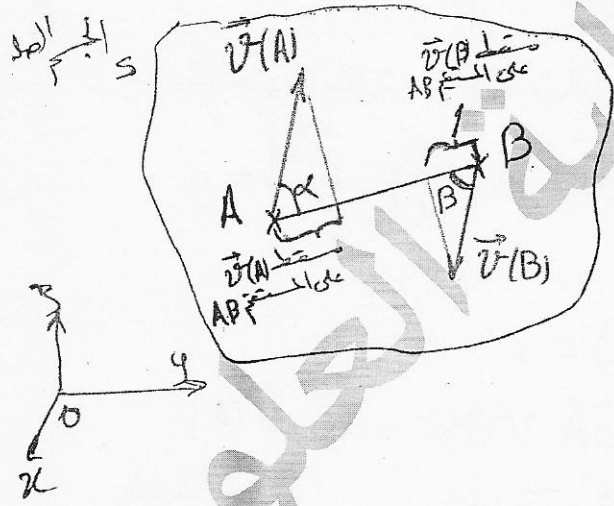 الجسم الصلب S
v⃗(A)
مسقط v⃗(B)
على المستقيم AB
A
α
B
β
مسقط v⃗(A)
على المستقيم AB
v⃗(B)
z
y
o
x